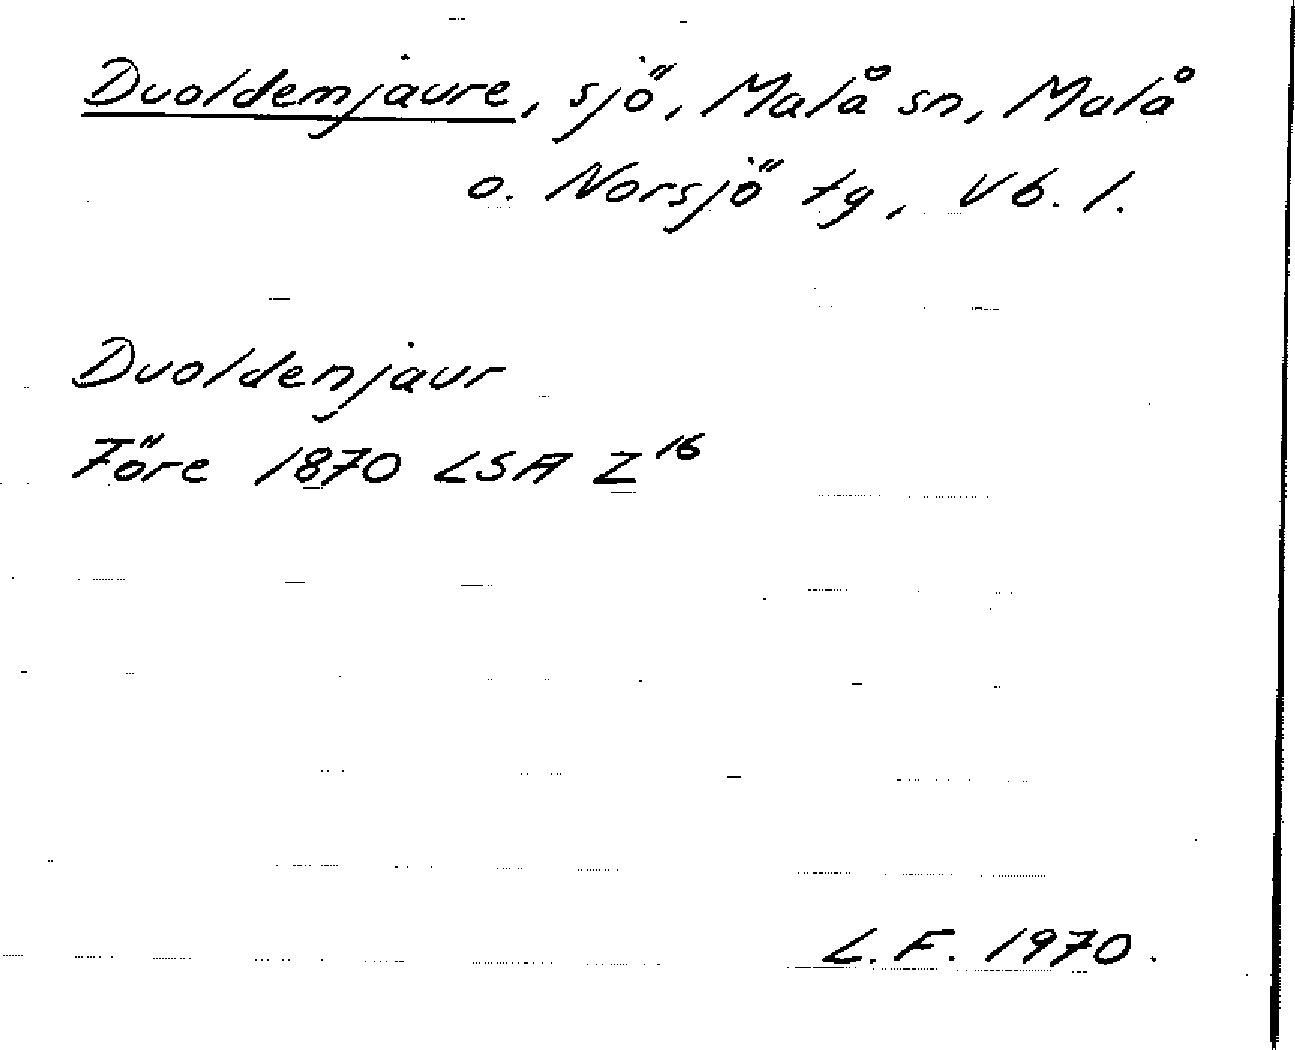 Duoldemjaure, sjö, Malå sn, Malå
o. Norsjö tg, Vb. l.
Duoldenjaur
Före 1870 LSA Z¹⁶
L.F. 1970.